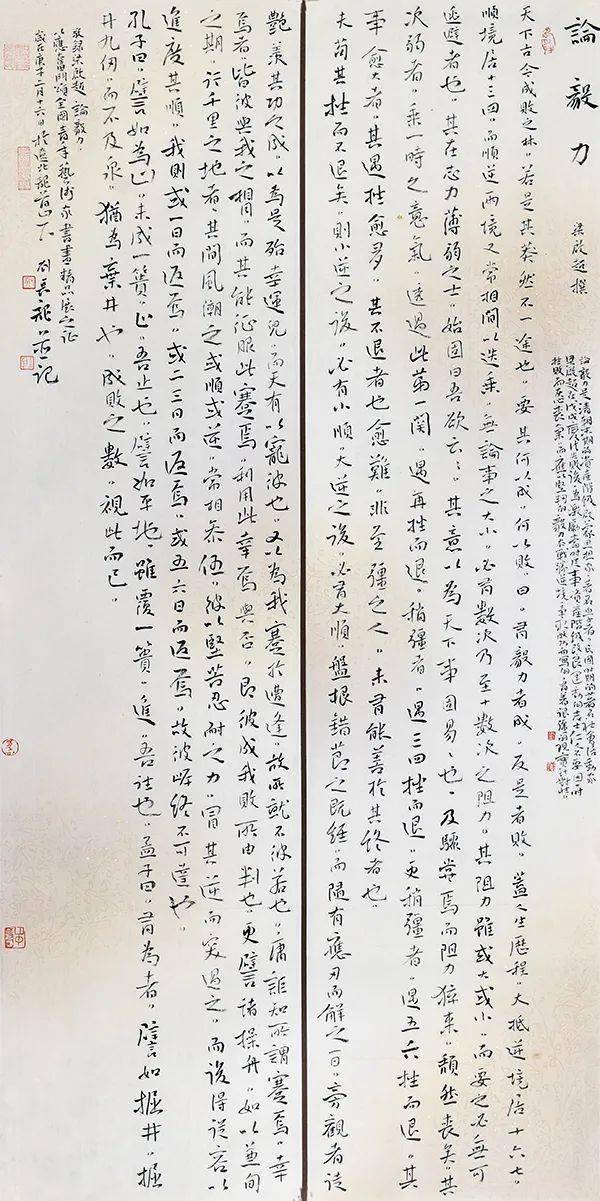 論毅力
梁啟超撰
論毅力是清朝末期資產階級政治家思想家著名學者民國時期的著名社會活動家
梁啟超在戊戌變法失敗後為激勵當時從事資產階級改良運動的志士仁人不要因一時
挫敗而喪氣而應以堅韌的毅力去戰勝逆境爭取成功而寫的有着很強的現實針對性
天下古今成敗之林，若是其莽然不一途也，要其何以成，何以敗，曰，有毅力者成，反是者敗，蓋人生歷程，大抵逆境居十六七，
順境居十三四，而順逆兩境又常相間以迭乘，無論事之大小，必有數次乃至十數次之阻力，其阻力雖或大或小，而要之必無可
逃避者也，其在志力薄弱之士，始固曰吾欲云云，其意以為天下事固易易也，及驟嘗焉而阻力猝來，頹然喪矣，其
次弱者，乘一時之意氣，透過此第一關，遇再挫而退，稍彊者，遇三四挫而退，更稍彊者，遇五六挫而退，其
事愈大者，其遇挫愈多，其不退者也愈難，非至彊之人，未有能善於其終者也，
夫苟其挫而不退矣，則小逆之後，必有小順，大逆之後，必有大順，盤根錯節之既經，而隨有應刃而解之一日，旁觀者徒
艷羨其功之成，以為是殆幸運兒，而天有以寵彼也，又以為我蹇於遭逢，故所就不彼若也，庸詎知所謂蹇焉，幸
焉者，皆彼與我之相同，而其能征服此蹇焉，利用此幸焉與否，即彼成我敗所由判也，更譬諸操舟，如以兼旬
之期，行千里之地者，其間風潮之或順或逆，常相參伍，彼以堅苦忍耐之力，冒其逆而突過之，而後得從容以
進度其順，我則或一日而返焉，或二三日而返焉，或五六日而返焉，故彼岸終不可達也，
孔子曰，譬如為山，未成一簣，止，吾止也，譬如平地，雖覆一簣，進，吾往也，孟子曰，有為者，譬如掘井，掘
井九仞，而不及泉，猶為棄井也，成敗之數，視此而已，
敬錄梁啟超論毅力，
以應奮鬥頌全國青年藝術家書畫精品展之征
歲在庚子二月十六日於遼北龍首山下